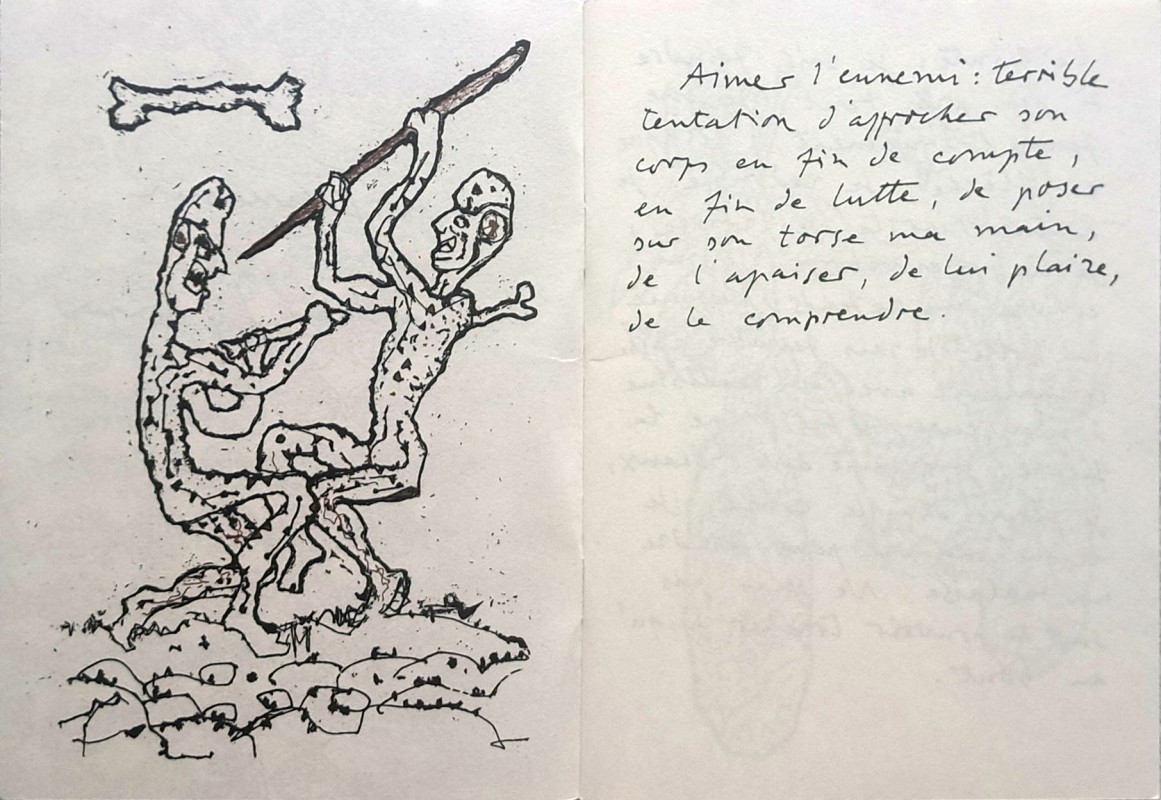 Aimer l'ennemi : terrible
tentation d'approcher son
corps en fin de compte,
en fin de lutte, de poser
sur son torse ma main,
de l'apaiser, de lui plaire,
de le comprendre.